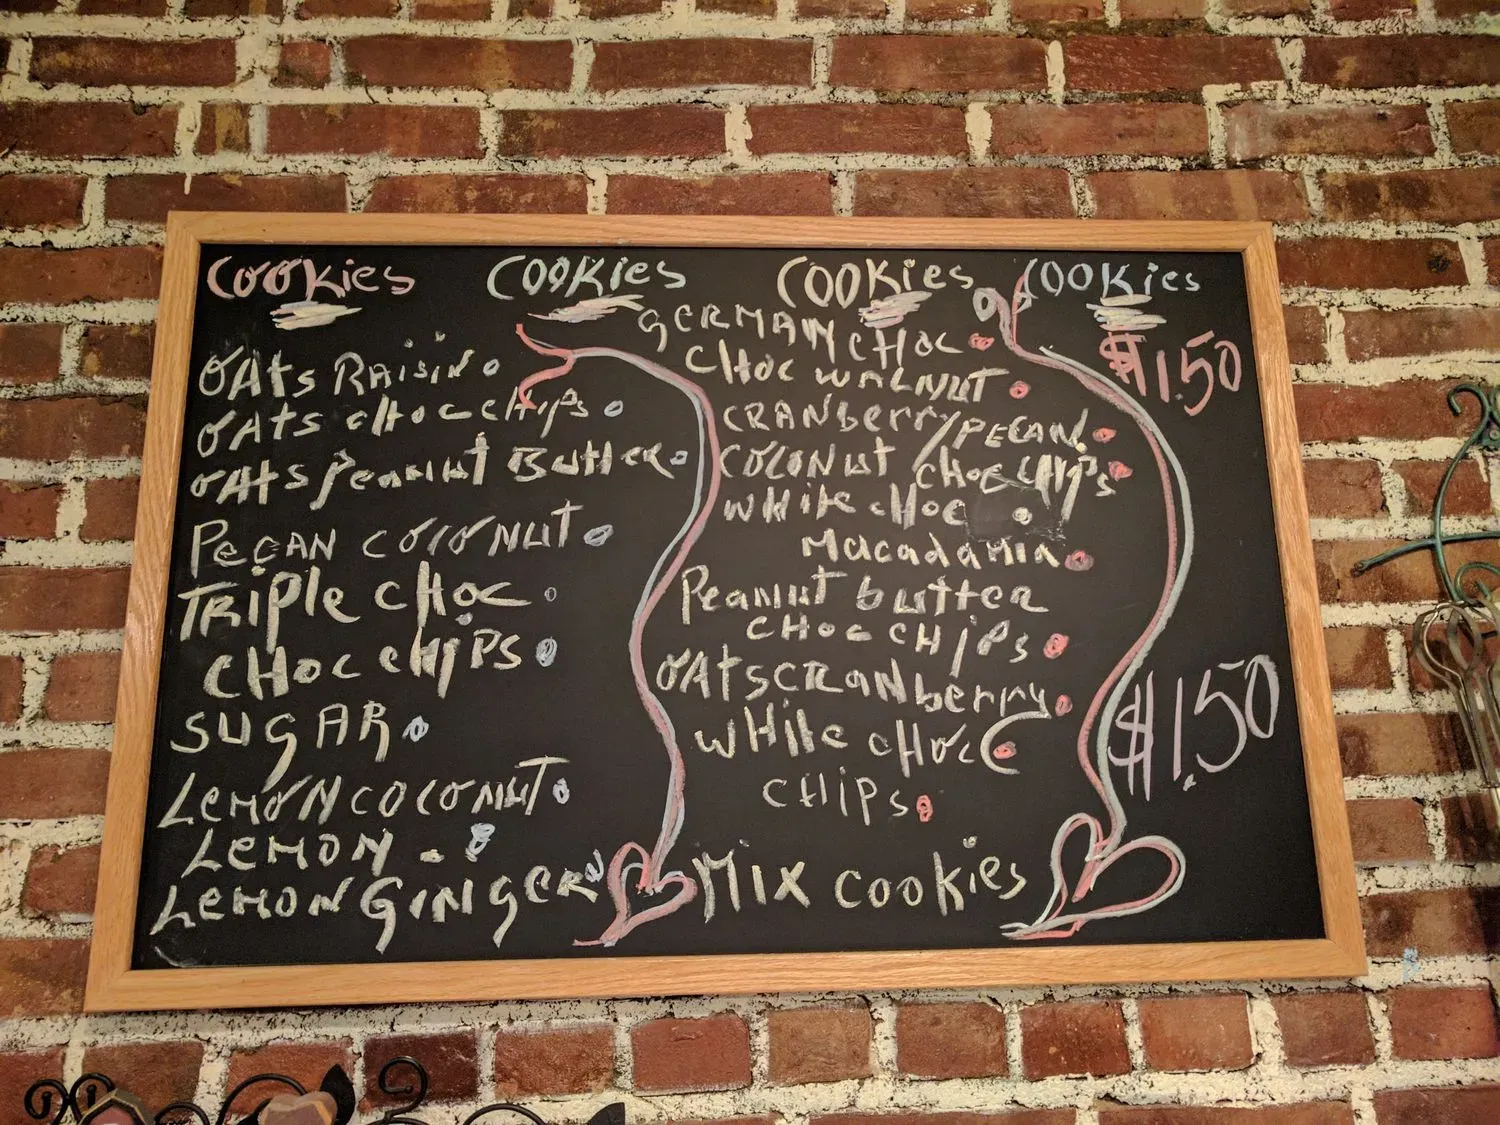 COOKies COOKies COOKies COOKies
OAts RAisin
OAts cHoc cHips
OAts Peanut Butter
PecAN COCONUT
TRiPle CHOC
CHOC cHiPS
SUGAR
LEMON COCONUT
LEMON
LEMON GINGER
GERMAN CHOC
CHOC WALNUT
CRANberry/PECAN
COCONut CHOC CHiPs
WHite CHOC
Macadamia
Peanut butter
CHOC CHiPs
OAts CRanberry
WHite CHOC
CHiPs
Mix cookies
$1.50
$1.50